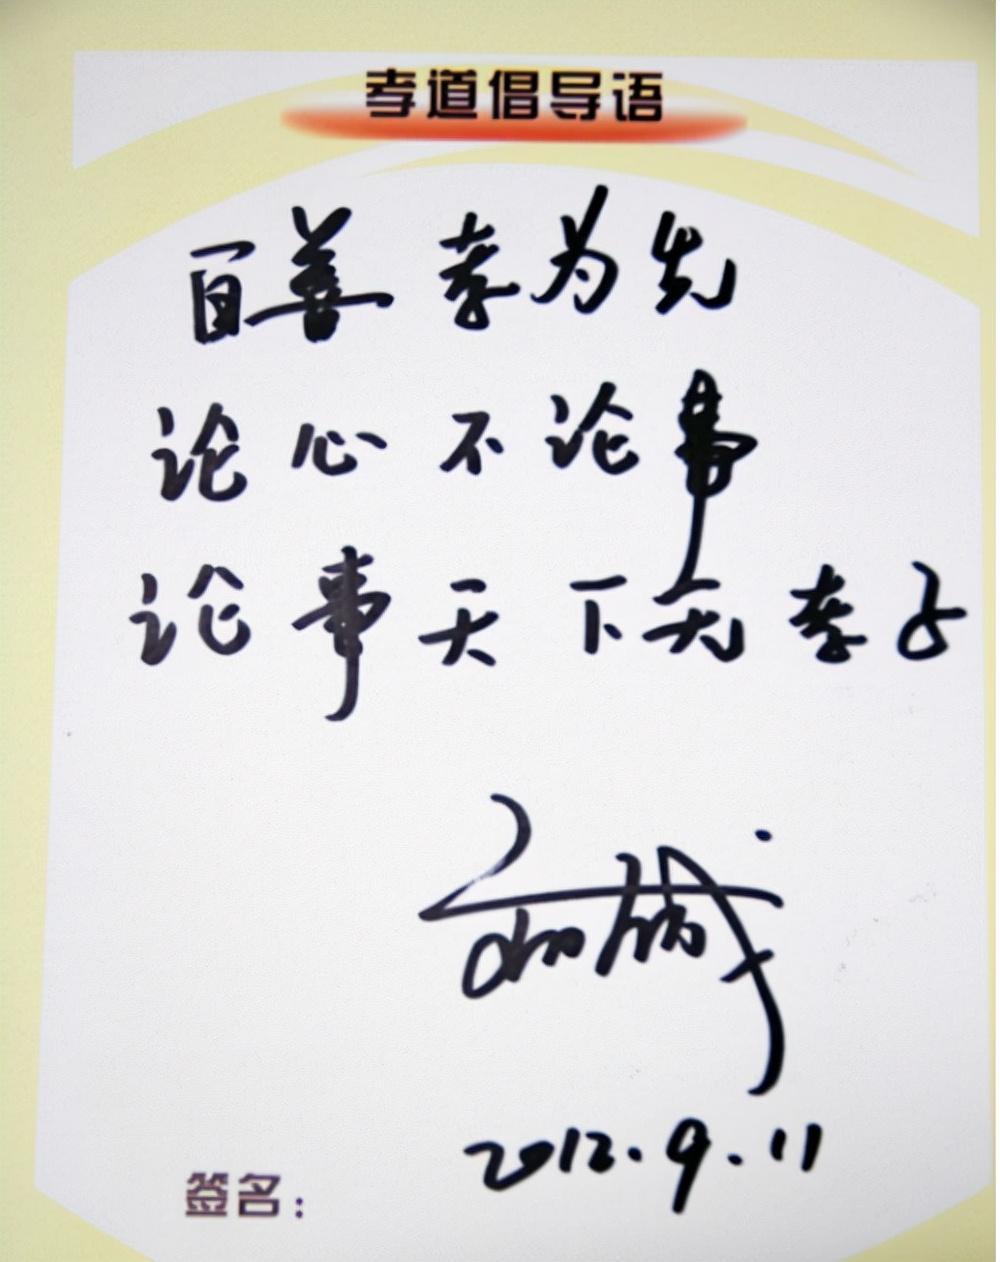 孝道倡导语
百善孝为先
论心不论事
论事天下无孝子
2012.9.11
签名：